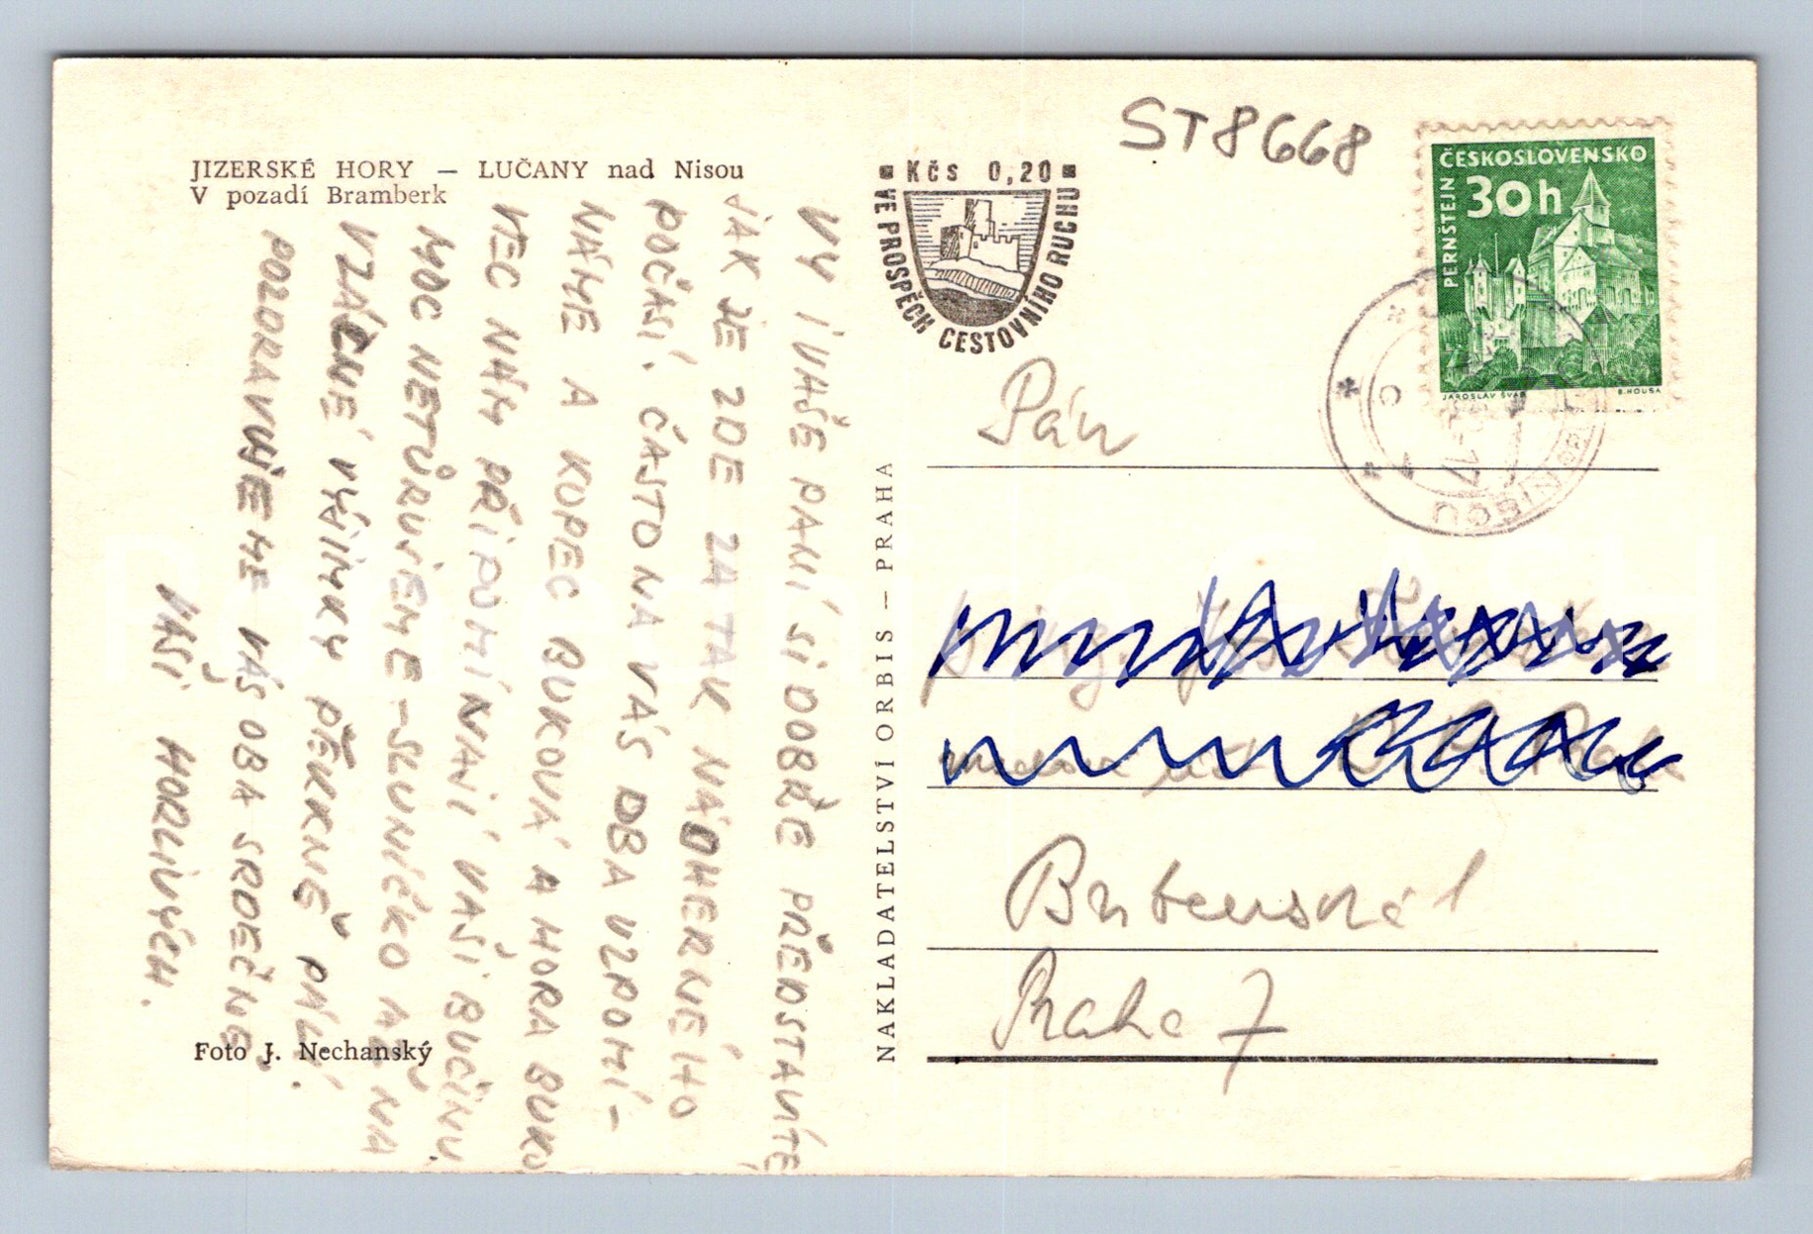 JIZERSKÉ HORY — LUČANY nad Nisou
V pozadí Bramberk
VY I VAŠE PANÍ SI DOBŘE PŘEDSTAVÍTE
JAK JE ZDE ZA TAK NÁDHERNÉHO
POČASÍ. ČASTO NA VÁS OBA VZPOMÍ-
NÁME A KOPEC BUKOVÁ A HORA BUKO
VEC NÁM PŘIPOMÍNAJÍ VAŠI BUČINU
MOC NETŮRUJEME - SLUNÍČKO AŽ NA
VZÁCNÉ VÝJIMKY PĚKNĚ PÁLÍ.
POZDRAVUJEME VÁS OBA SRDEČNĚ
VAŠI HORLIVÝCH.
Foto J. Nechanský
NAKLADATELSTVÍ ORBIS — PRAHA
Kčs 0,20
VE PROSPĚCH CESTOVNÍHO RUCHU
ST8668
ČESKOSLOVENSKO
30h
PERNŠTEJN
JAROSLAV ŠVÁB
B. HOUSA
NISOU
Pán
Praha 7